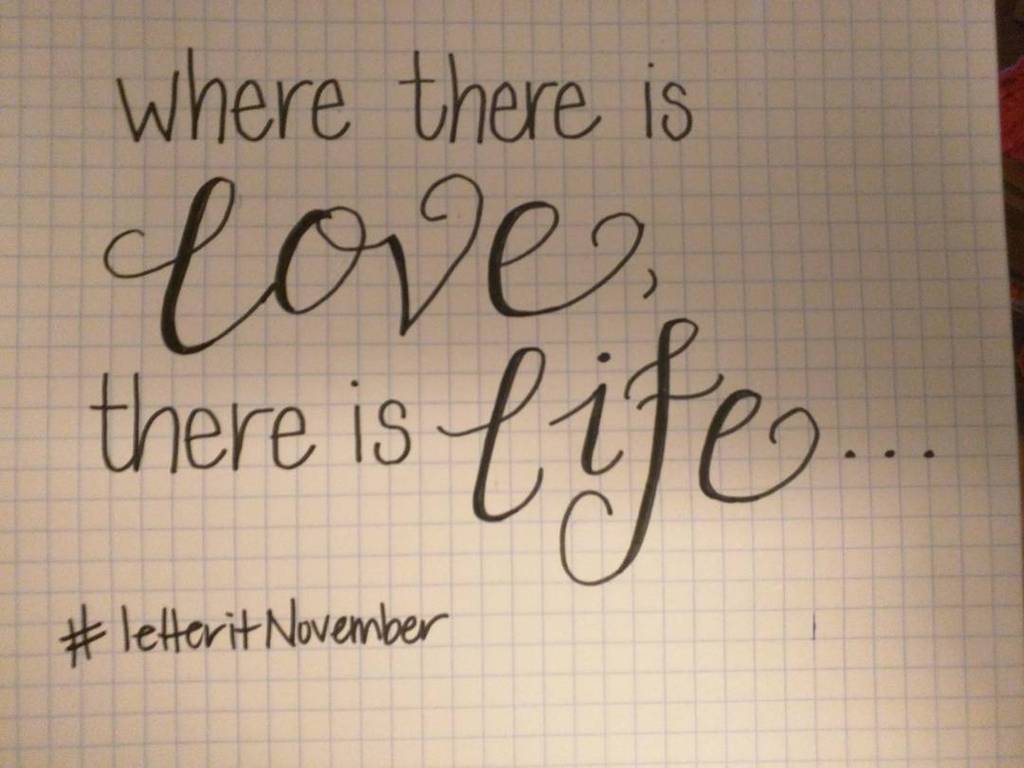 where there is
love,
there is life...
#letteritNovember